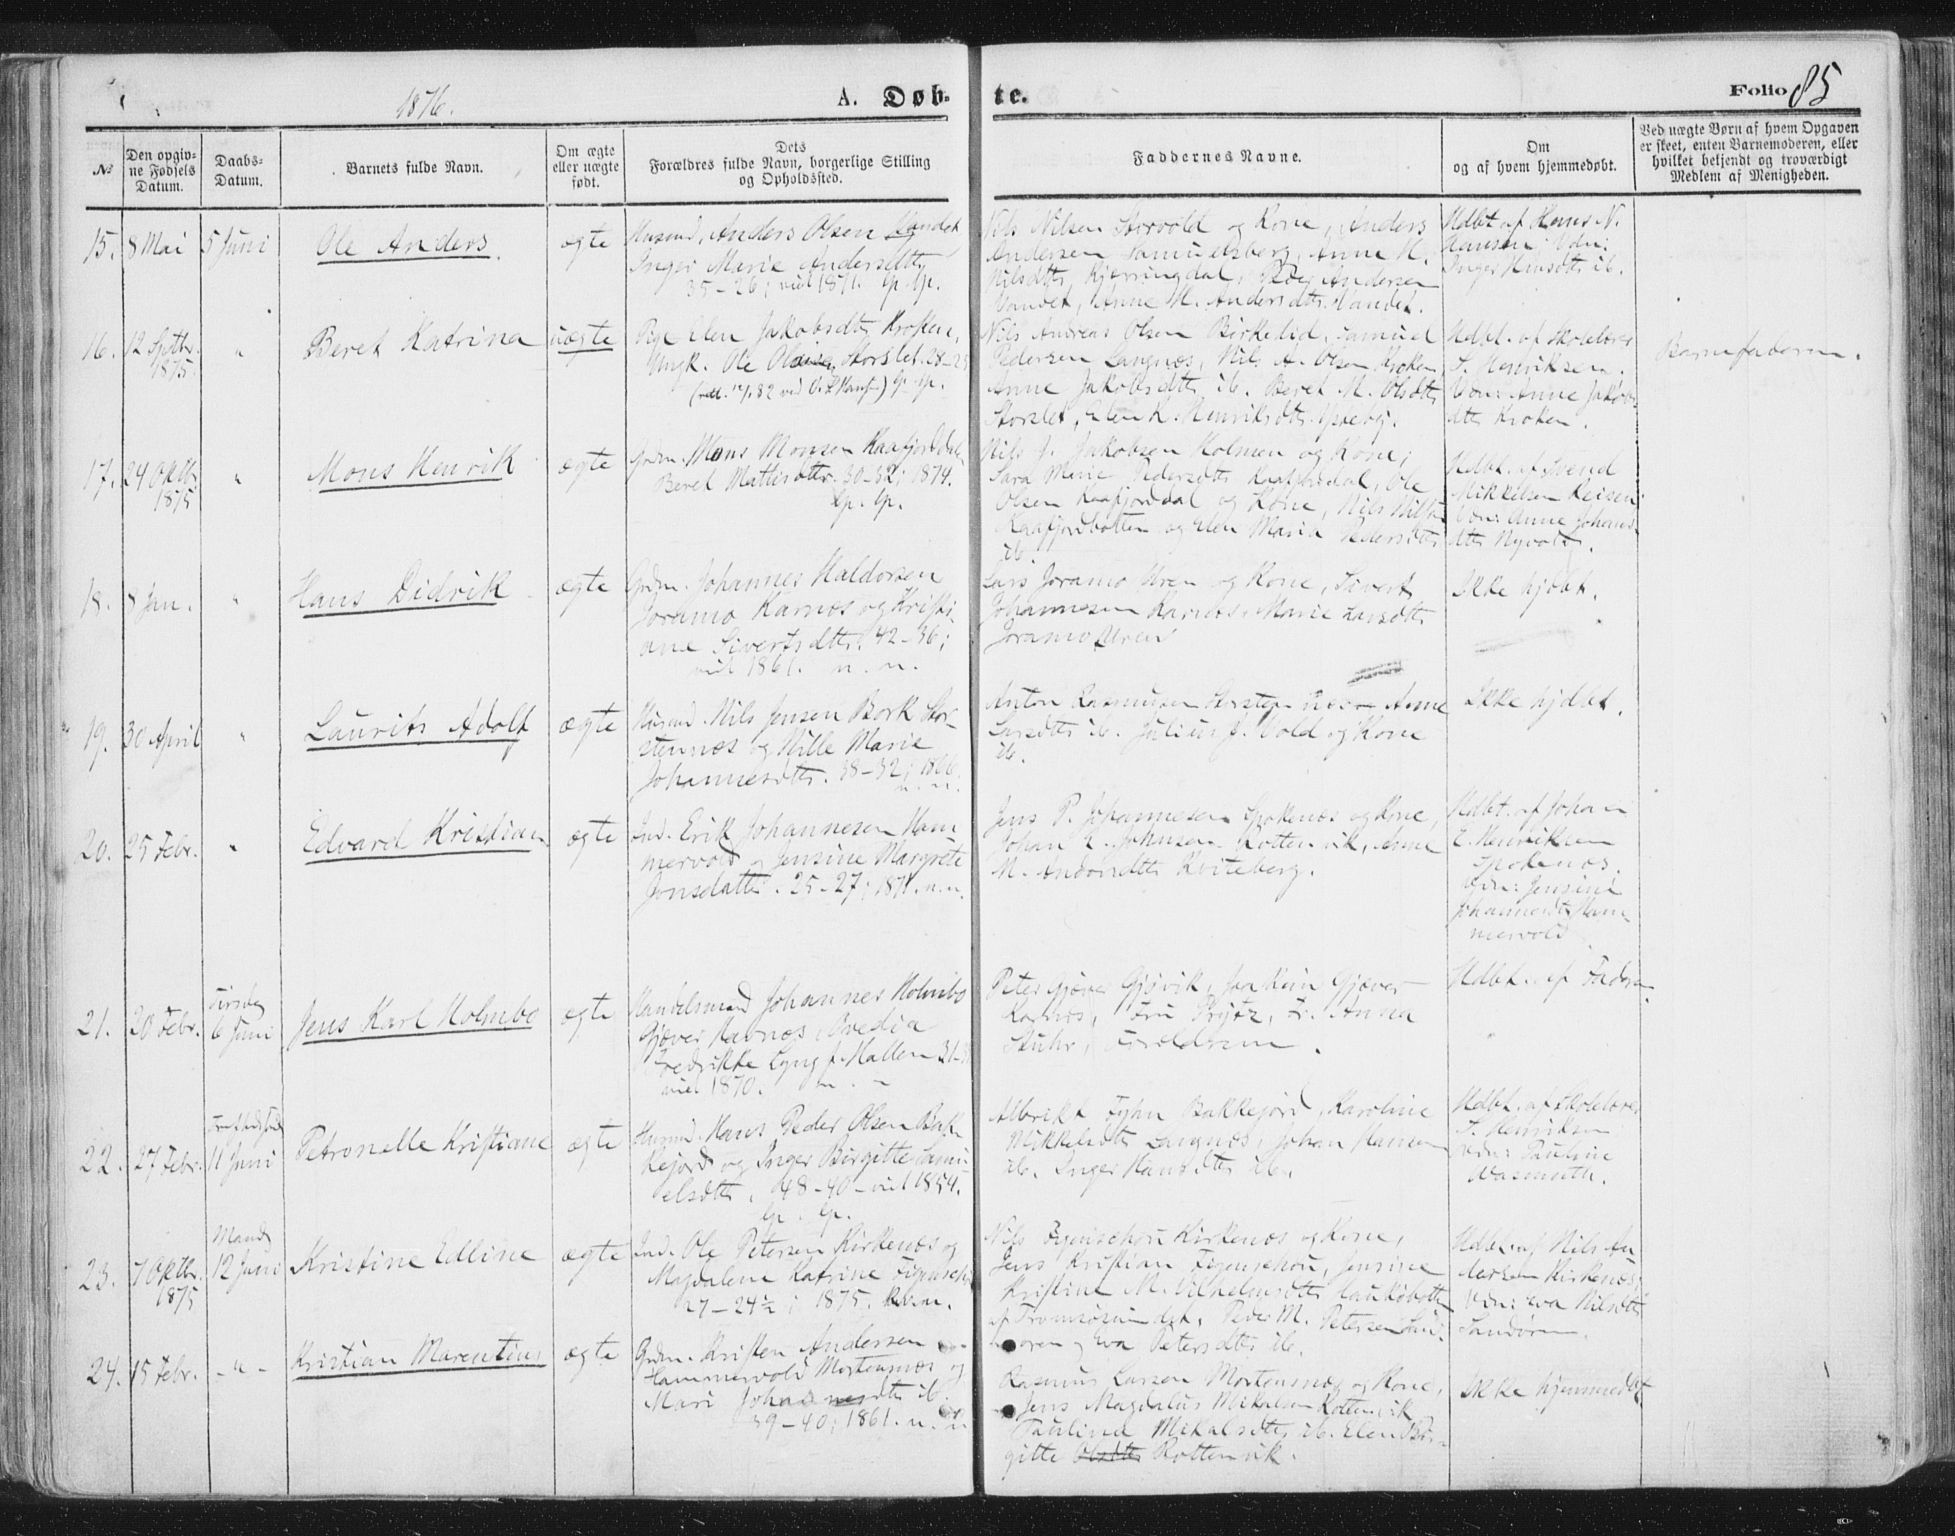 1876.
A. Døb-
te.
Folio 85
№
Den opgiv-
ne Fødsels
Datum.
Daabs-
Datum.
Barnets fulde Navn.
Om ægte
eller uægte
født.
Dets
Forældres fulde Navn, borgerlige Stilling
og Opholdssted.
Faddernes Navne.
Om
og af hvem hjemmedøbt.
Ved uægte Børn af hvem Opgaven
er skeet, enten Barnemoderen, eller
hvilket bekjendt og troværdigt
Medlem af Menigheden.
15. 8 Mai 5 Juni Ole Anders ægte
Husmd. Anders Olsen
Inger Marie Andersdtr.
35-26; viet 1871. lp. lp.
Nils Nilsen Storvold og Kone, Anders
Andersen Samuelsberg, Anne M.
Nilsdtr. Kjerringdal, Peder Andersen
Vandet, Anne M. Andersdtr. Vandet.
Hdbt. af Hans N.
Hansen. Vdn:
Inger Hansdtr. ib.
16. 12 Septbr.
1875. " Beret Katrina uægte
Pige Elen Jakobsdtr. Kroken,
Ungk. Ole Olsen Storslet. 28-25
lp. lp.
Nils Andreas Olsen Birkelid, Samuel
Pedersen Langnes, Nils A. Olsen Kroken,
Anne Jakobsdtr. ib. Beret M. Olsdtr.
Storslet, Elen K. Henriksdtr.
Hdbt. af Skolelærer
S. Henriksen.
Vdn: Anne Jakobs-
dtr. Kroken.
Barnefaderen.
17. 24 Oktbr.
1875 " Mons Henrik ægte
Grdm. Mons Monsen Kaafjorddal,
Beret Mattisdtr. 30-32; 1874.
lp. lp.
Nils J. Jakobsen Holmen og Kone,
Sara Marie Pedersdtr. Kaafjorddal, Ole
Olsen Kaafjorddal og Kone, Nils Nils.
Kaafjordbotten og Elen Maria Pedersdtr.
ib.
Hdbt. af Svend
Mikkelsen Reisen
Vdn: Anne Johans-
dtr. Nyvold.
18. 8 Jan. " Hans Didrik ægte
Grdm. Johannes Haldorsen
Joramo Karnes og Kristi-
ane Sivertsdtr. 42-36;
viet 1861. n. n.
Lars Joramo Uren og Kone, Sivert
Johannesen Karnes, Marie Larsdtr.
Joramo Uren
Ikke hjdbt.
19. 30 April " Laurits Adolf ægte
Husmd. Nils Jensen Bork Stor-
stennes og Hille Marie
Johannesdtr. 38-32; 1866.
n. n.
Anton Rasmusen Storstennes Anne
Larsdtr. ib. Julius J. Vold og Kone
ib.
Ikke hjdbt.
20. 25 Febr. " Edvard Kristian ægte
Ind. Erik Johannesen Ham-
mervold og Jensine Margrete
Jonsdatter. 25-27; 1871. n. n.
Jens P. Johannesen Spokenes og Kone,
Johan E. Johnsen Rottenvik, Anne
M. Kviteberg.
Hdbt. af Johan
E. Henriksen
Spokenes.
Vdn: Jensine
Johannesdtr. Ham-
mervold
21. 20 Febr. Tirsdag
6 Juni Jens Karl Holmbo ægte
Handelsmand Johannes Holmbo
Gjæver Havnes, Ovedia
Fredrikke Lyng f. Hallen 31-
viet 1870. n.
Peter Gjæver Gjøvik, Joakim Gjæver
Fru Prytz, Fr. Anna
Stuhr, Forældrene.
Hdbt. af Faderen
22. 27 Febr.
11 Juni Petronelle Kristiane ægte
Husmd. Hans Peder Olsen Bak-
kejord og Inger Birgitte Samu-
elsdtr. 48-40-viet 1854.
lp. lp.
Albrekt Fyhn Bakkejord, Karoline
Mikkelsdtr. Langnes, Johan Hansen
ib. Inger Hansdtr. ib.
Hdbt. af Skolelærer
S. Henriksen
Vdn: Pauline
Wasmuth.
23. 7 Oktbr.
1875 Mandag
12 Juni Kristine Edline ægte
Ind. Ole Petersen Kirkenes og
Magdalena Katrine Figenschou
27-24½; 1875.
Nils Figenschou Kirkenes og Kone,
Jens Kristian Figenschou, Jensine
Kristine M. Vilhelmsdtr. Laukøbotten
af Tromsøsundet, Peder M. Petersen Sand-
øren og Eva Petersdtr. ib.
Hdbt. af Nils An-
dersen Kirkenes,
Vdn: Eva Nilsdtr.
Sandøren.
24. 15 Febr. -"- Kristian Marentius ægte
Grdm. Kristen Andersen
Hammervold Mortensnes og
Mari Johannesdtr. ib.
39-40; 1861. n. n.
Rasmus Larsen Mortensnes og Kone,
Jens Magdalus Mikalsen Rottenvik
Paulina Mikalsdtr. ib. Elen Bir-
gitte Olsdtr. Rottenvik.
Ikke hjemmedbt.